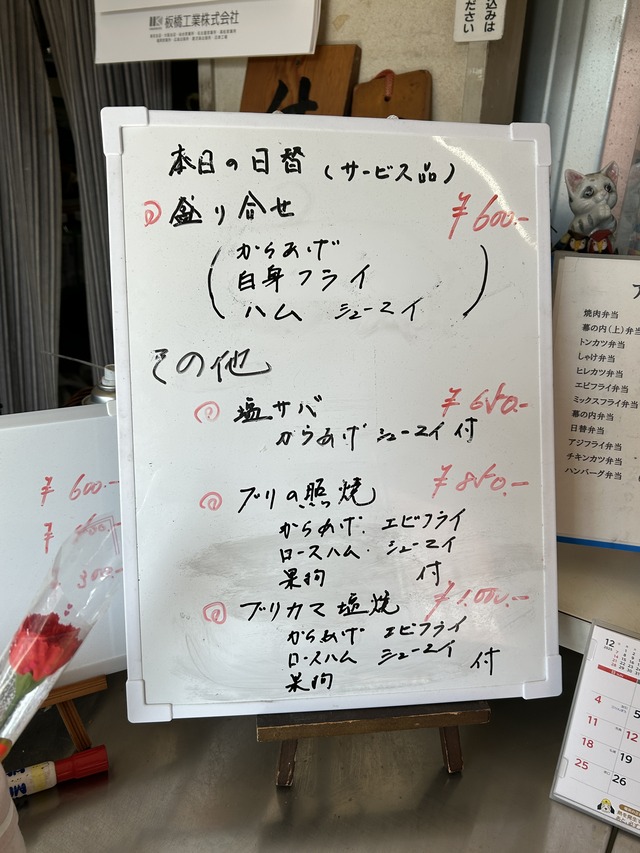 板橋工業株式会社
込みは
ださい
本日の日替(サービス品)
盛り合せ ¥600.-
(からあげ
白身フライ
ハム シューマイ)
その他
塩サバ ¥650.-
からあげ シューマイ付
ブリの照焼 ¥850.-
からあげ. エビフライ
ロースハム. シューマイ
果物 付
ブリカマ塩焼 ¥1.000.-
からあげ エビフライ
ロースハム シューマイ
果物 付
¥600.-
300.-
焼肉弁当
幕の内(上)弁当
トンカツ弁当
しゃけ弁当
ヒレカツ弁当
エビフライ弁当
ミックスフライ弁当
幕の内弁当
日替弁当
アジフライ弁当
チキンカツ弁当
ハンバーグ弁当
12
4 5
11 12
18 19
25 26